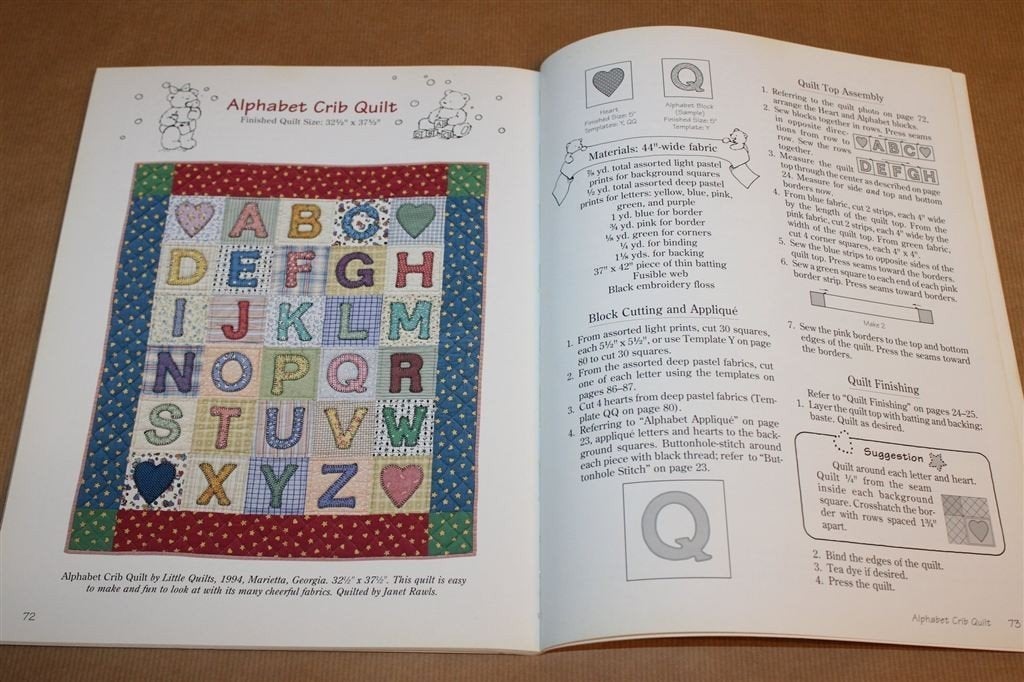 Alphabet Crib Quilt
Finished Quilt Size: 32½" x 37½"
A B C
D E F G H
I J K L M
N O P Q R
S T U V W
X Y Z
Alphabet Crib Quilt by Little Quilts, 1994, Marietta, Georgia. 32½" x 37½". This quilt is easy
to make and fun to look at with its many cheerful fabrics. Quilted by Janet Rawls.
72
Heart
Finished Size: 5"
Templates: Y, QQ
Q
Alphabet Block
(Sample)
Finished Size: 5"
Template: Y
Materials: 44"-wide fabric
⅞ yd. total assorted light pastel
prints for background squares
½ yd. total assorted deep pastel
prints for letters: yellow, blue, pink,
green, and purple
1 yd. blue for border
¾ yd. pink for border
⅛ yd. green for corners
¼ yd. for binding
1¼ yds. for backing
37" x 42" piece of thin batting
Fusible web
Black embroidery floss
Block Cutting and Appliqué
1. From assorted light prints, cut 30 squares,
each 5½" x 5½", or use Template Y on page
80 to cut 30 squares.
2. From the assorted deep pastel fabrics, cut
one of each letter using the templates on
pages 86–87.
3. Cut 4 hearts from deep pastel fabrics (Tem-
plate QQ on page 80).
4. Referring to "Alphabet Appliqué" on page
23, appliqué letters and hearts to the back-
ground squares. Buttonhole-stitch around
each piece with black thread; refer to "But-
tonhole Stitch" on page 23.
Q
Quilt Top Assembly
1. Referring to the quilt photo on page 72,
arrange the Heart and Alphabet blocks.
2. Sew blocks together in rows. Press seams
in opposite direc-
tions from row to
row. Sew the rows
together.
ABC
DEFGH
3. Measure the quilt
top through the center as described on page
24. Measure for side and top and bottom
borders now.
4. From blue fabric, cut 2 strips, each 4" wide
by the length of the quilt top. From the
pink fabric, cut 2 strips, each 4" wide by the
width of the quilt top. From green fabric,
cut 4 corner squares, each 4" x 4".
5. Sew the blue strips to opposite sides of the
quilt top. Press seams toward the borders.
6. Sew a green square to each end of each pink
border strip. Press seams toward borders.
Make 2
7. Sew the pink borders to the top and bottom
edges of the quilt. Press the seams toward
the borders.
Quilt Finishing
Refer to "Quilt Finishing" on pages 24–25.
1. Layer the quilt top with batting and backing;
baste. Quilt as desired.
Suggestion
Quilt around each letter and heart.
Quilt ¼" from the seam
inside each background
square. Crosshatch the bor-
der with rows spaced 1¾"
apart.
2. Bind the edges of the quilt.
3. Tea dye if desired.
4. Press the quilt.
Alphabet Crib Quilt 73